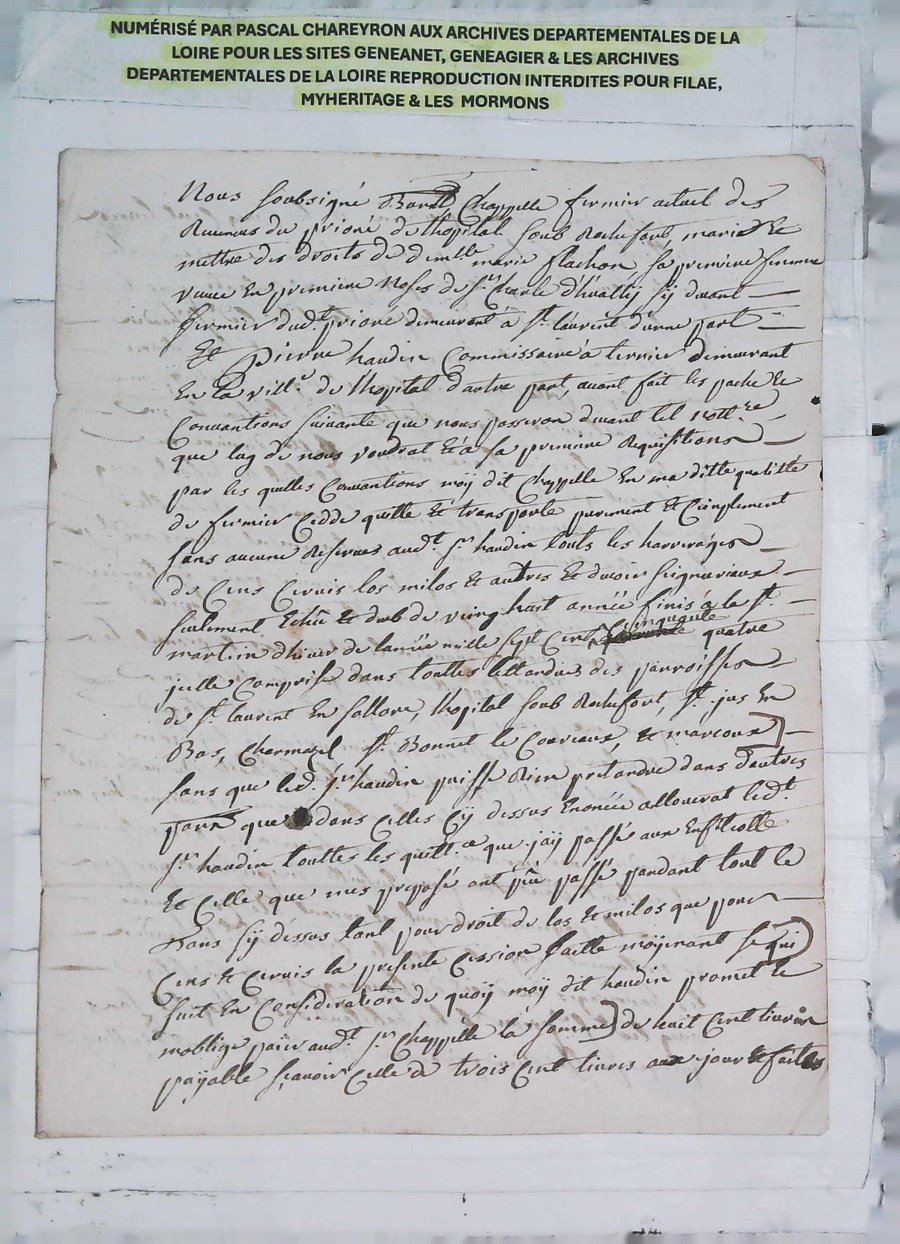 NUMÉRISÉ PAR PASCAL CHAREYRON AUX ARCHIVES DEPARTEMENTALES DE LA
LOIRE POUR LES SITES GENEANET, GENEAGIER & LES ARCHIVES
DEPARTEMENTALES DE LA LOIRE REPRODUCTION INTERDITES POUR FILAE,
MYHERITAGE & LES MORMONS
Nous soubsigné Chappelle fermier actuel des
Revenus du prioré de lhopital soub Rochefort marie et
mettre des droits de demlle marie flachon sa premiere femme
veuve En premiere Noses de sr. Charle sÿ devant
fermier dud.t prioré demeurant a st. laurent dune part
Et pierre haudin Commissaire a terrier demeurant
En la ville de lhopital dautre part, avont fait les pache et
Convantions suivante que nous passeron devant tel nottre
que lug de nous voudrat et a sa premiere Requisitions
par les quelles Convantions moÿ dit Chappelle En ma ditte qualitté
de fermier Cedde quitte et transporte purement et Cimplement
sans aucune Reserves aud.t sr. haudin touts les harrerages
de Cens Cervis los milos et autres et devoir seigneuriaux
seulement Echu et dub de veing huit année finis a la st.
martin dhiver de lannée mille sept Cent Cinquante quatre
jcelle Comprise dans touttes des parroisses
de st. laurent En sollore, lhopital soub Rochefort, st. jus En
Bas, Chermazel st. Bonnet le Courreaux, et marcoux
sans que led. sr. haudin puisse Rien pretandre dans dautres
que dans Celles Cÿ dessus Enoncée allouerat led.t
sr. haudin touttes les quitt.ce que jaÿ passé aux
Et Celle que mes preposé ont pû passé pandant tout le
sÿ dessus tant pour droit de los et milos que pour
Cens et Cervis la presente Cession faitte moÿenant se qui
suit En Consideration de quoÿ moÿ dit haudin promet et
moblige païer aud.t sr. Chappelle la somme de huit Cent livres
païable sçavoir Celle de trois Cent livres au jour et faites